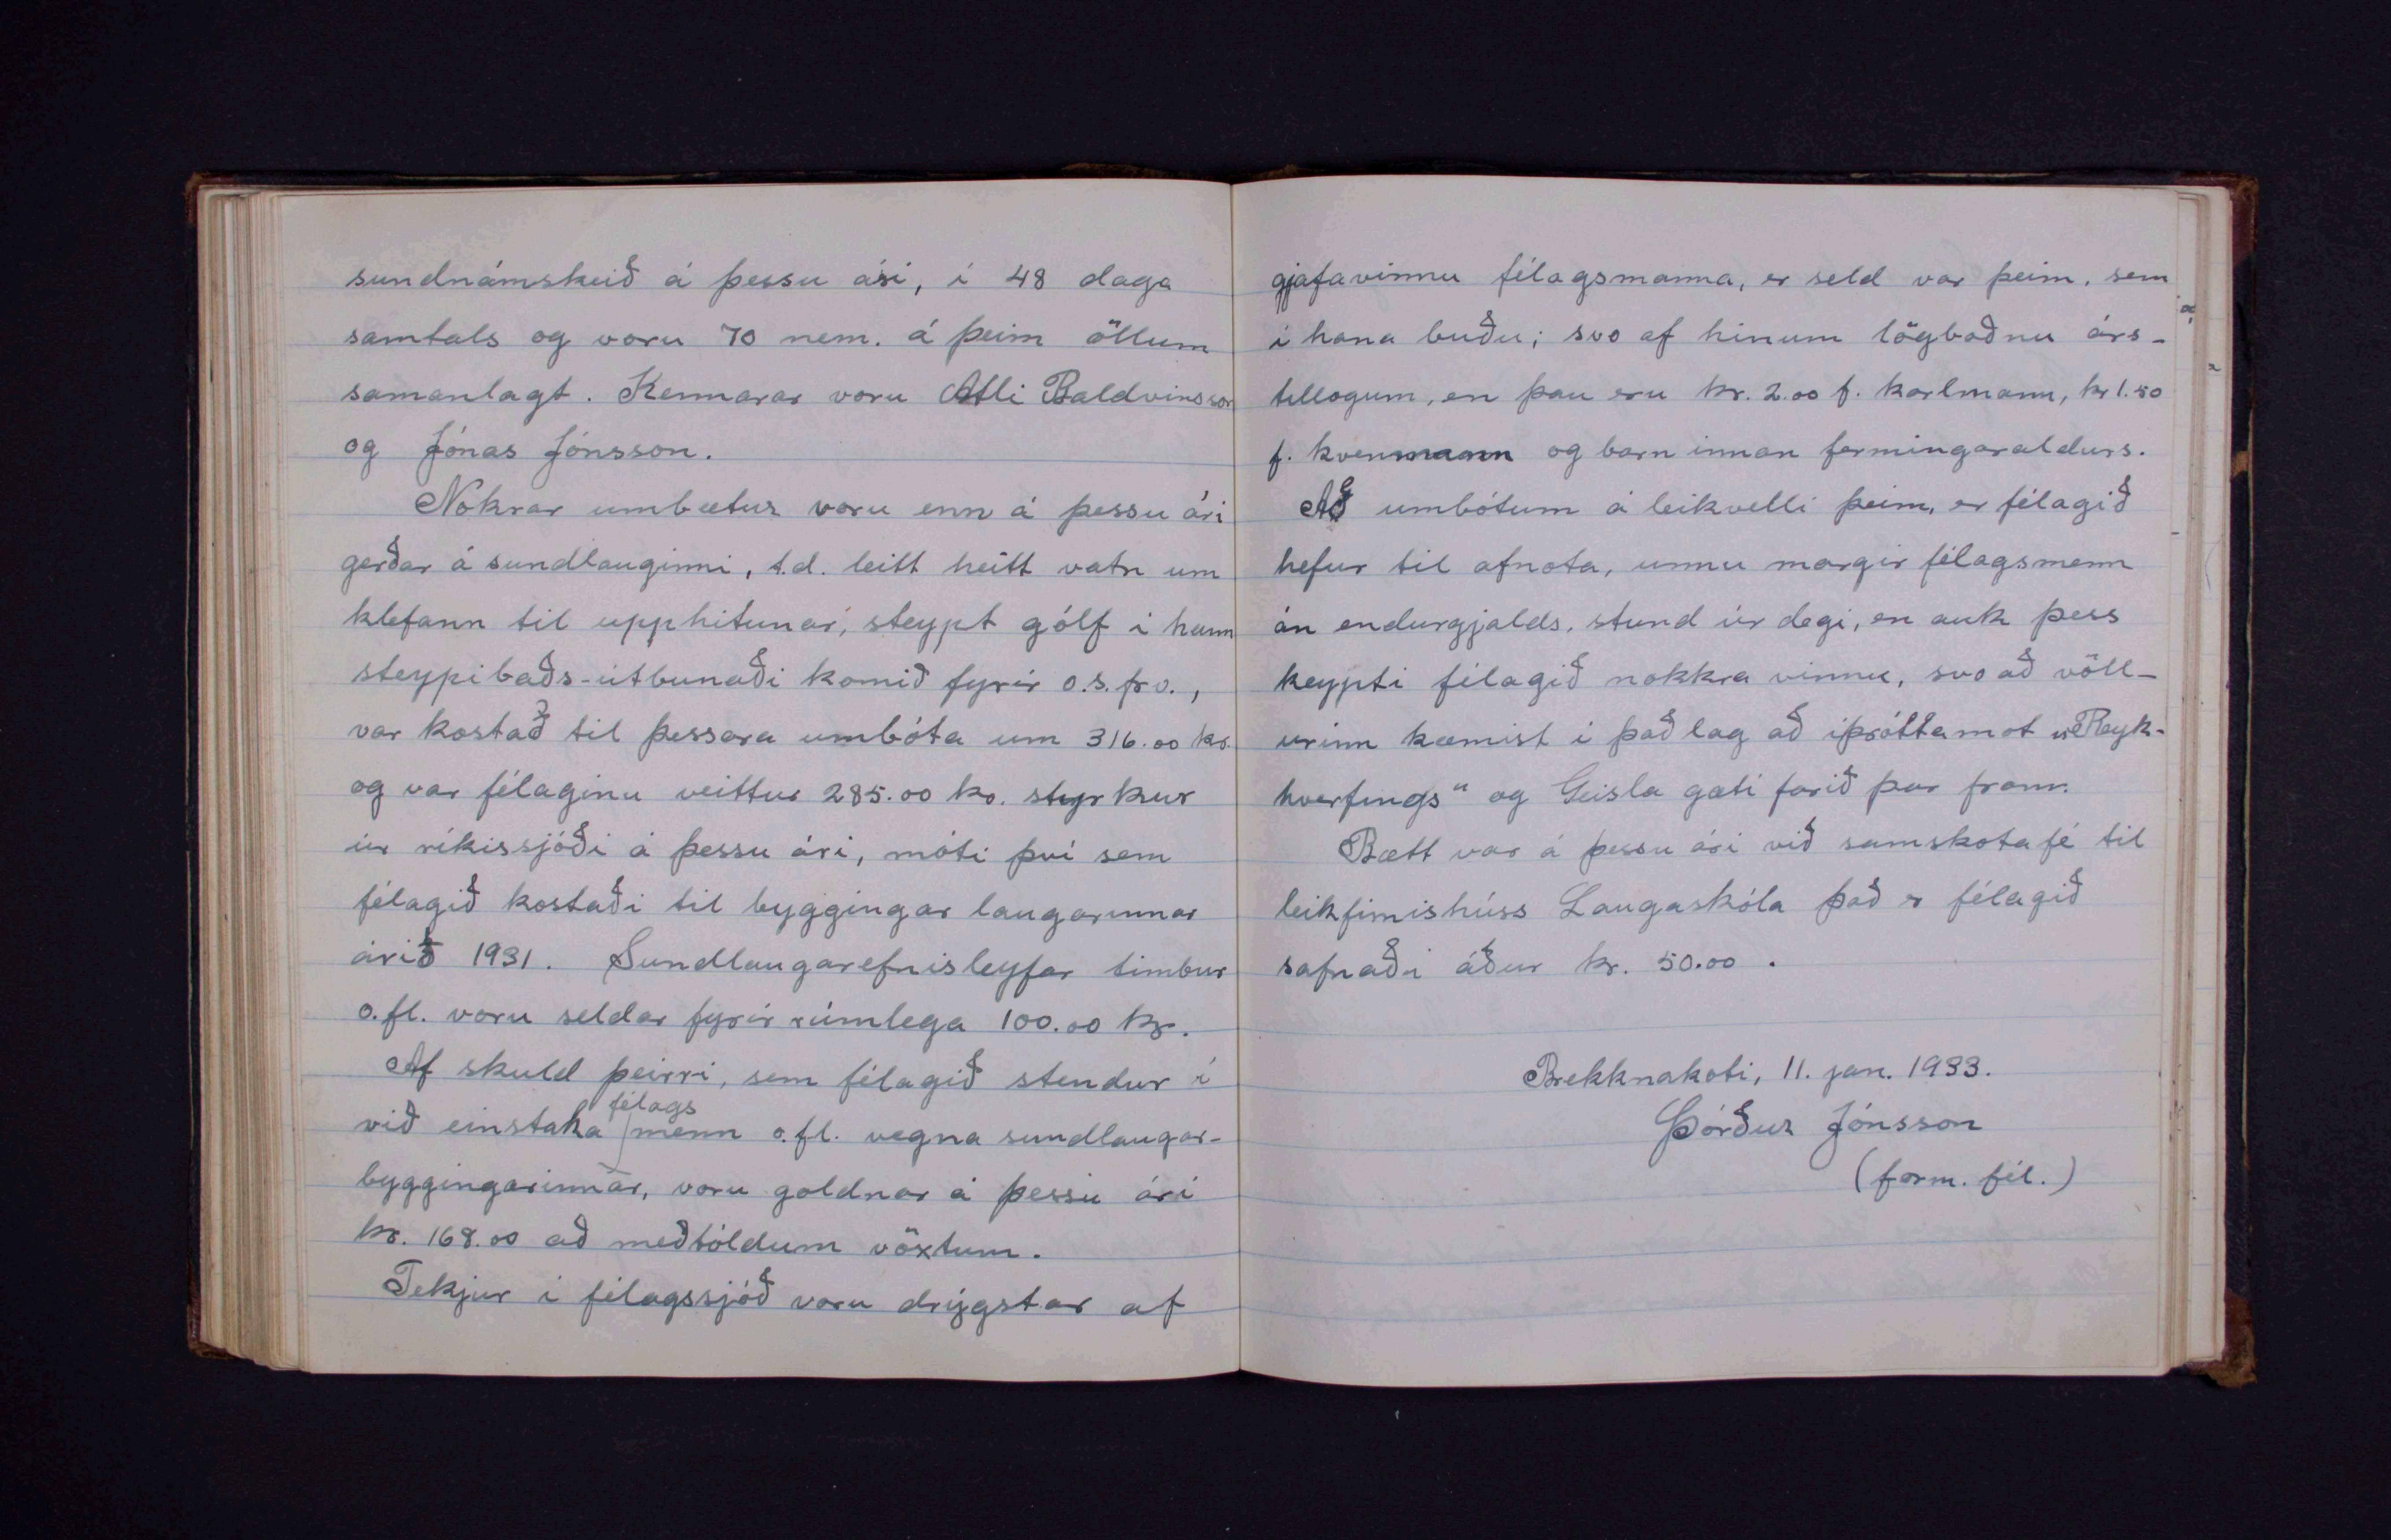 sundnámskeið á þessu ári, í 48 daga
samtals og voru 70 nem. á þeim öllum
samanlagt. Kennarar voru Atli Baldvinsson
og Jónas Jónsson.
Nokrar umbætur voru enn á þessu ári
gerðar á sundlauginni, t.d. leitt heitt vatn um
klefann til upphitunar, steypt gólf í hann
steypibaðs-útbunaði komið fyrir o.s.frv.,
var kostað til þessara umbóta um 316.00 kr.
og var félaginu veittur 285.00 kr. styrkur
úr ríkissjóði á þessu ári, móti því sem
félagið kostaði til byggingar laugarinnar
árið 1931. Sundlaugarefnisleyfar timbur
o.fl. voru seldar fyrir rúmlega 100.00 kr.
Af skuld þeirri, sem félagið stendur í
við einstaka félagsmenn o.fl. vegna sundlaugar-
byggingarinnar, voru goldnar á þessu ári
kr. 168.00 að meðtöldum vöxtum.
Tekjur í félagssjóð voru drýgstar af
gjafavinnu félagsmanna, er seld var þeim, sem
í hana buðu; svo af hinum lögboðnu árs-
tillogum, en þau eru kr. 2.00 f. karlmann, kr 1.50
f. kvenmann og barn innan fermingaraldurs.
Að umbótum á leikvelli þeim, er félagið
hefur til afnota, unnu margir félagsmenn
án endurgjalds, stund úr degi, en auk þess
keypti félagið nokkra vinnu, svo að völl-
urinn kæmist í það lag að íþróttamot „Reyk-
hverfings" og Geisla gæti farið þar fram.
Bætt var á þessu ári við samskotafé til
leikfimishúss Laugaskóla það er félagið
safnaði áður kr. 50.00.
Brekknakoti, 11. jan. 1933.
Þórður Jónsson
(form. fél.)